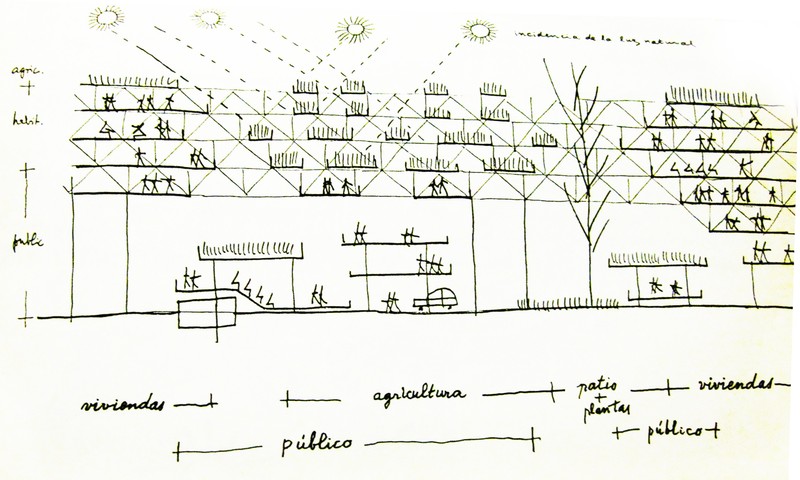 incidencia de la luz natural
agric.
+
habit.
public
viviendas
agricultura
patio
+
plantas
viviendas
público
público